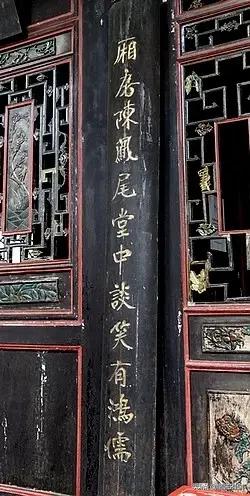 厢房陳鳳尾堂中談笑有鴻儒